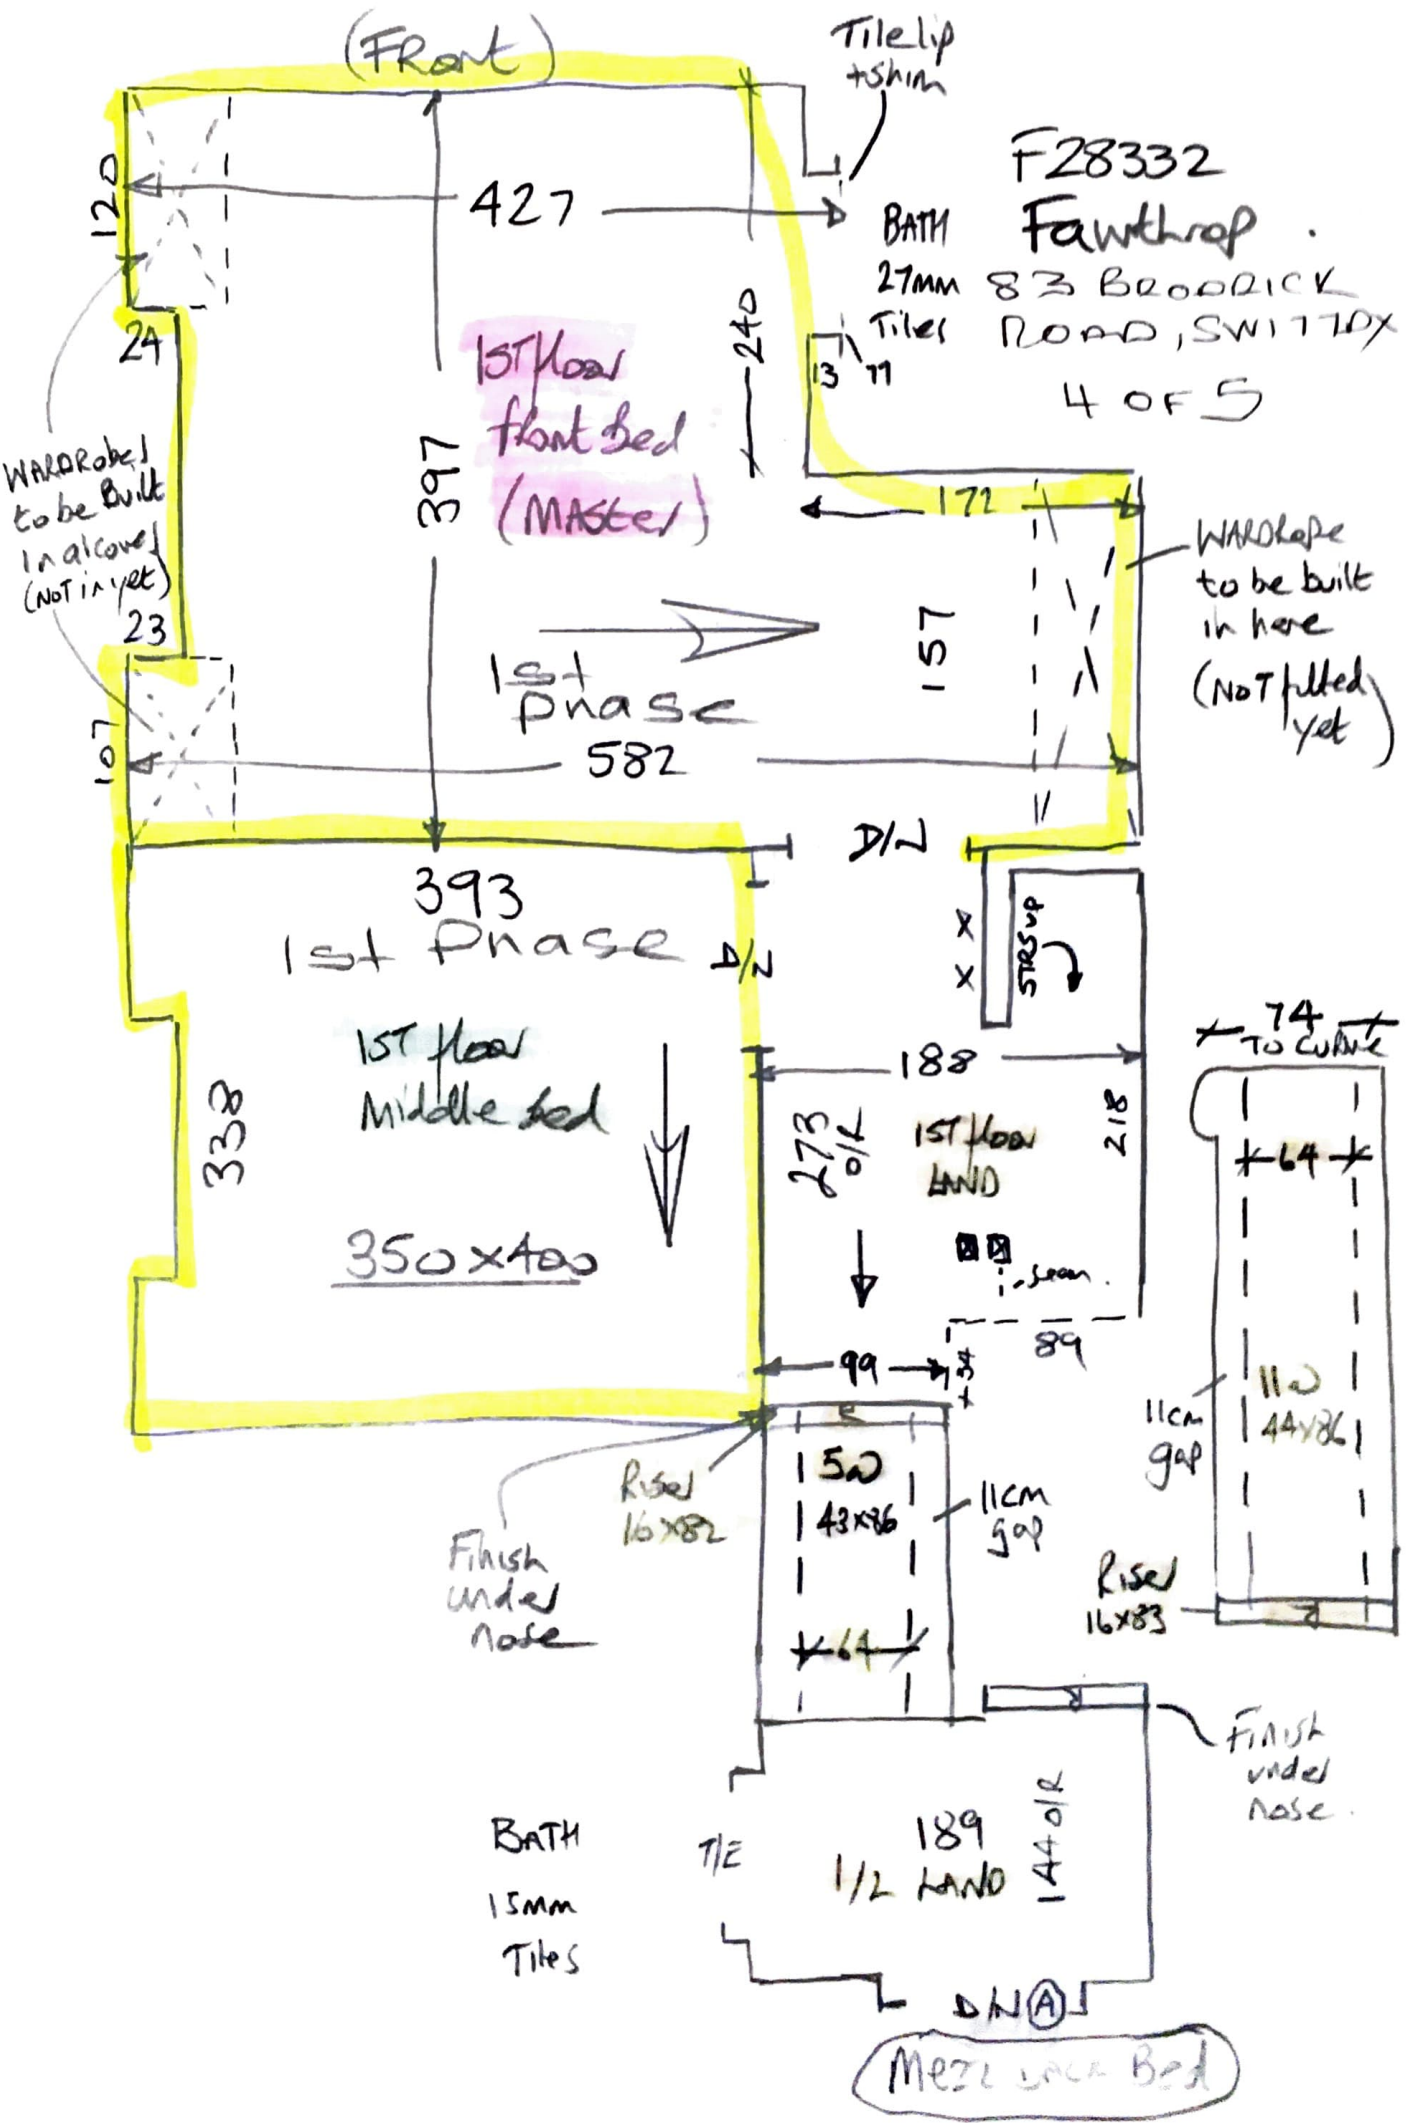 (Front)
Tile lip
+ shim
F28332
Fawthrop
83 BRODRICK
ROAD, SW17 7DX
4 OF 5
120
427
BATH
27mm
Tiles
24
240
13
11
1ST floor
front Bed
(MASter)
397
WARDRobes
to be Built
In alcoves
(NOT in yet)
172
WARDRobe
to be built
in here
(NOT fitted
yet)
23
157
1st
Phase
107
582
D/N
393
1st Phase
D/N
X X
STRS up
1ST floor
Middle Bed
338
188
74
TO CURVE
273
O/R
1ST floor
LAND
218
64
350x400
Seam.
89
99
34
11W
44x86
11cm
gap
R
5W
43x86
Riser
16x82
11cm
gap
Finish
under
nose
Riser
16x83
R
64
R
Finish
under
nose.
BATH
15mm
Tiles
T/E
189
1/2 LAND
144 O/R
D/N A
Bed